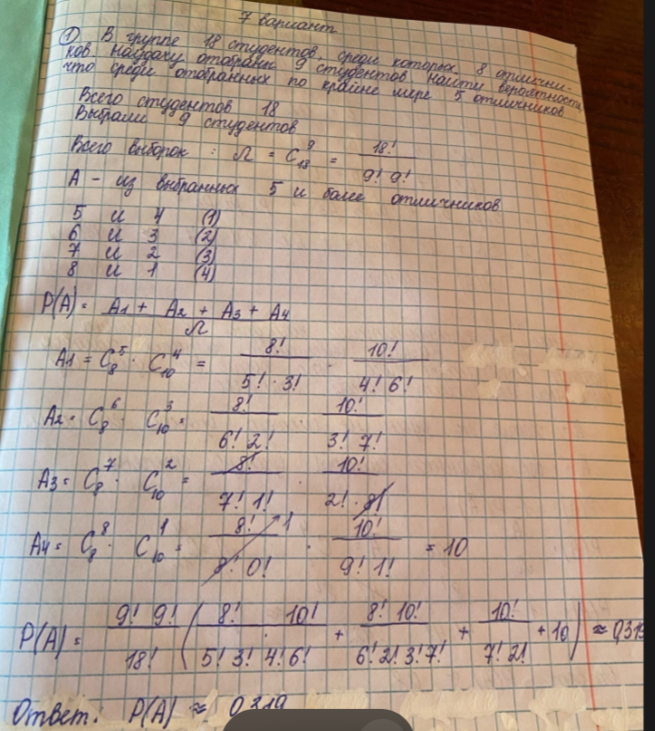 7 вариант
① В группе 18 студентов, среди которых 8 отлични-
ков. Наудачу отобраны 9 студентов. Найти вероятность,
что среди отобранных по крайне мере 5 отличников
Всего студентов 18
Выбрали 9 студентов
Всего выборок : Ω = C₁₈⁹ = 18! / 9! 9!
A - из выбранных 5 и более отличников
5 и 4 (1)
6 и 3 (2)
7 и 2 (3)
8 и 1 (4)
P(A) = A1 + A2 + A3 + A4 / Ω
A1 = C₈⁵ · C₁₀⁴ = 8! / 5! · 3! · 10! / 4! 6!
A2 = C₈⁶ · C₁₀³ = 8! / 6! 2! · 10! / 3! 7!
A3 = C₈⁷ · C₁₀² = 8! / 7! 1! · 10! / 2! · 8!
A4 = C₈⁸ · C₁₀¹ = 8! / 8! 0! 1 · 10! / 9! 1! = 10
P(A) = 9! 9! / 18! (8! · 10! / 5! 3! 4! 6! + 8! 10! / 6! 2! 3! 7! + 10! / 7! 2! + 10) ≈ 0,319
Ответ: P(A) ≈ 0,319